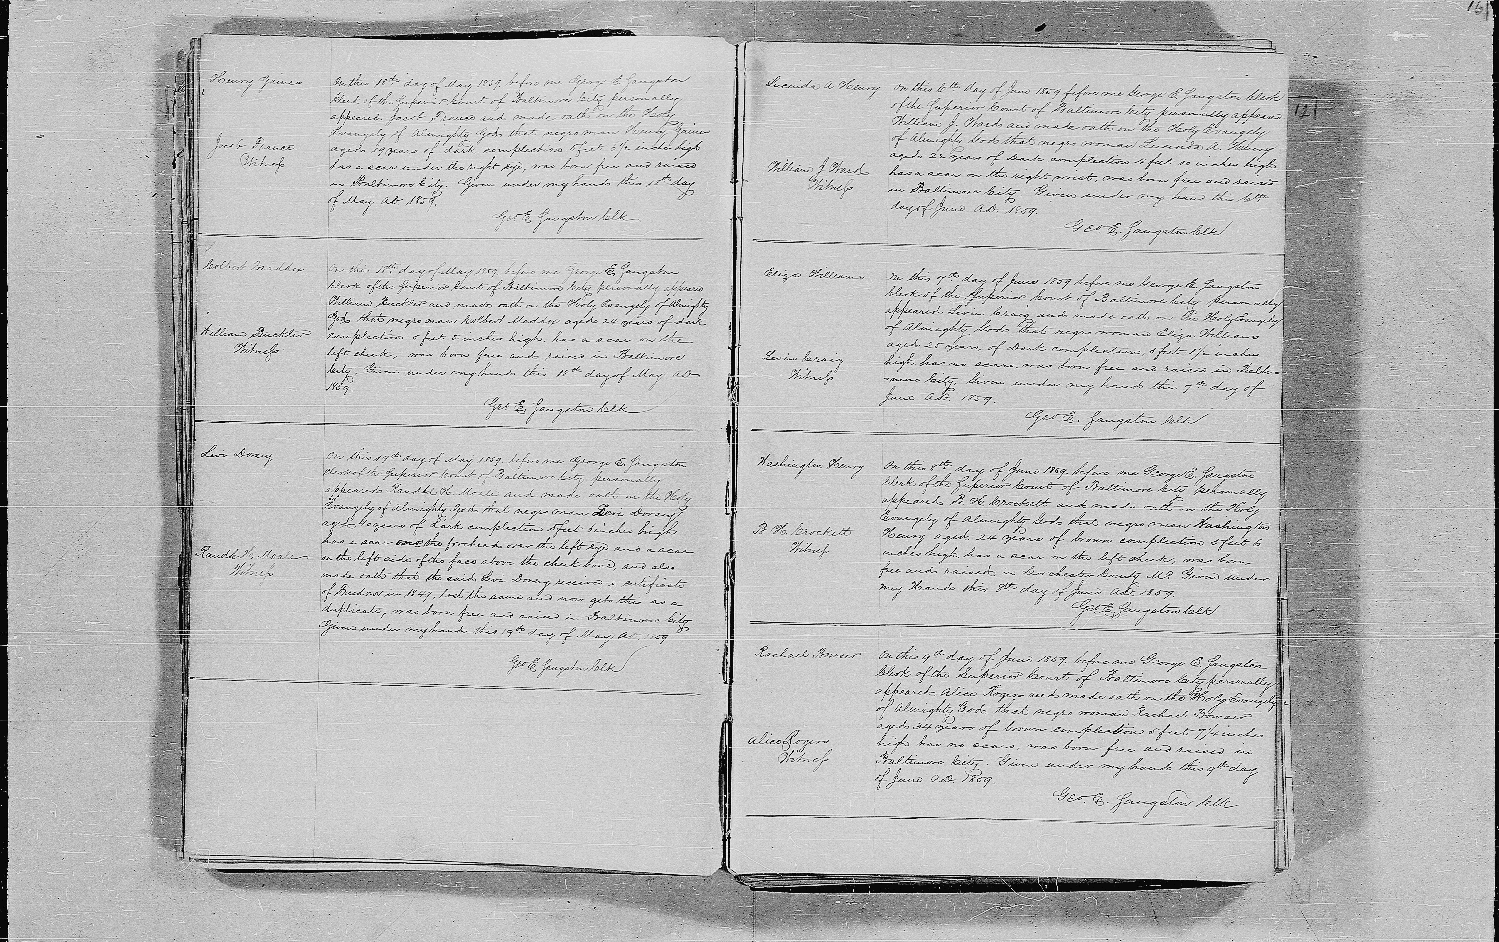 Henry Gaines
On this 18th day of May 1859 before me George E. Sangston
Clerk of the Superior Court of Baltimore City personally
appeared Jacob France and made oath on the Holy
Evangely of Almighty God, that negro man Henry Gaines
aged 19 years of dark complection 5 feet 5½ inches high
has a scar under the right eye, was born free and raised
in Baltimore City. Given under my hand this 18th day
of May AD 1859.
Jacob France
Witness
Geo E Sangston Clk
Colbert Maddox
On this 18th day of May 1859 before me George E Sangston
Clerk of the Superior Court of Baltimore City personally appeared
William and made oath on the Holy Evangely of Almighty
God that negro man Colbert Maddox aged 24 years of dark
complection 5 feet 5 inches high, has a scar on the
left cheek, was born free and raised in Baltimore
City. Given under my hand this 18th day of May AD
1859
William
Witness
Geo E Sangston Clk
Levi Dorsey
On this 19th day of May 1859 before me George E. Sangston
Clerk of the Superior Court of Baltimore City personally
appeared H. and made oath on the Holy
Evangely of Almighty God that negro man Levi Dorsey
aged 40 years of dark complection 5 feet inches high
has a scar on the forehead over the left eye and a scar
on the left side of the face above the cheek bone, and also
made oath that the said Levi Dorsey received a certificate
of freedom in 1847, lost the same and now gets this as a
duplicate, was born free and raised in Baltimore City
Given under my hand this 19th day of May AD 1859
Witness
Geo E Sangston Clk
161
121
Lucinda A Henry
On this 6th day of June 1859 before me George E. Sangston Clerk
of the Superior Court of Baltimore City personally appeared
William J. Ward and made oath on the Holy Evangely
of Almighty God that negro woman Lucinda A. Henry
aged 22 years of dark complection 5 feet 10 inches high
has a scar on the right wrist, was born free and raised
in Baltimore City. Given under my hand this 6th
day of June A.D. 1859.
William J Ward
Witness
Geo E. Sangston Clk
Eliza Williams
On this 7th day of June 1859 before me George E. Sangston
Clerk of the Superior Court of Baltimore City personally
appeared Levin Craig and made oath on the Holy Evangely
of Almighty God that negro woman Eliza Williams
aged 25 years, of dark complection, 5 feet 1½ inches
high has no scars was born free and raised in Balti-
-more City. Given under my hand this 7th day of
June AD. 1859.
Levin Craig
Witness
Geo E. Sangston Clk
Washington Henry
On this 8th day of June 1859 before me George E. Sangston
Clerk of the Superior Court of Baltimore City personally
appeared H Crockett and made oath on the Holy
Evangely of Almighty God that negro man Washington
Henry aged 24 years of brown complection 5 feet 6
inches high has a scar on the left cheek, was born
free and raised in Dorchester County Md. Given under
my hand this 8th day of June AD. 1859.
H Crockett
Witness
Geo E. Sangston Clk
Rachael Bowser
On this 9th day of June 1859 before me George E. Sangston
Clerk of the Superior Court of Baltimore City personally
appeared Alice Rogers and made oath on the Holy Evangely
of Almighty God that negro woman Rachael Bowser
aged 34 years of brown complection 5 feet inches
high has no scars, was born free and raised in
Baltimore City. Given under my hand this 9th day
of June AD. 1859
Alice Rogers
Witness
Geo. E. Sangston Clk